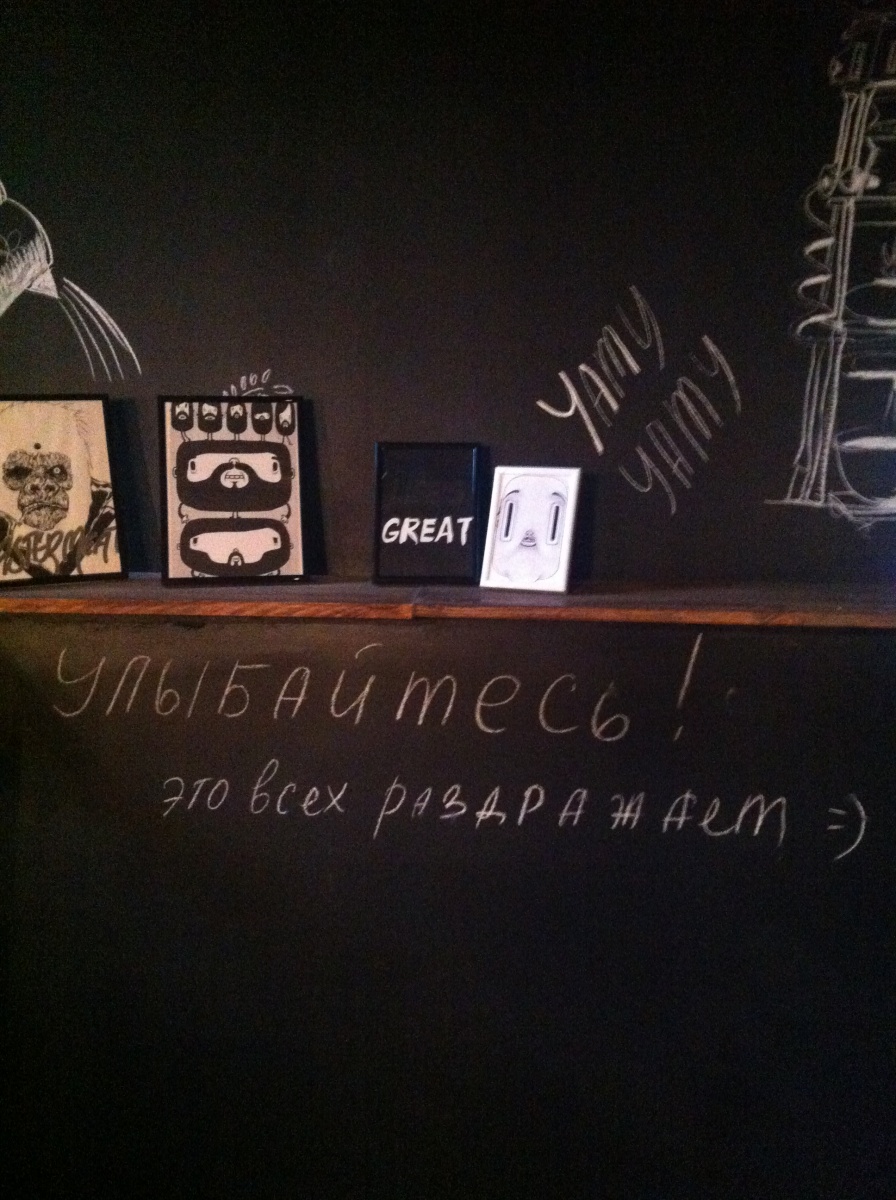 YAMY
YAMY
GREAT
УЛЫБАЙТЕСЬ!
это всех раздражает =)